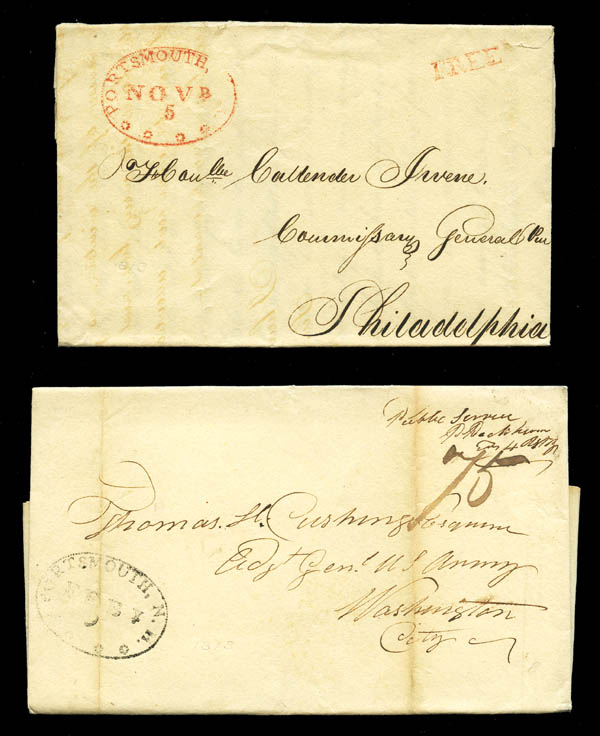 PORTSMOUTH,
NOVB
5
FREE
Callender Irvine.
Commissary General
Philadelphia
Public Service
75
Thomas H. Cushing Esquire
Adjt Genl US Army
Washington
City
PORTSMOUTH, N. H.